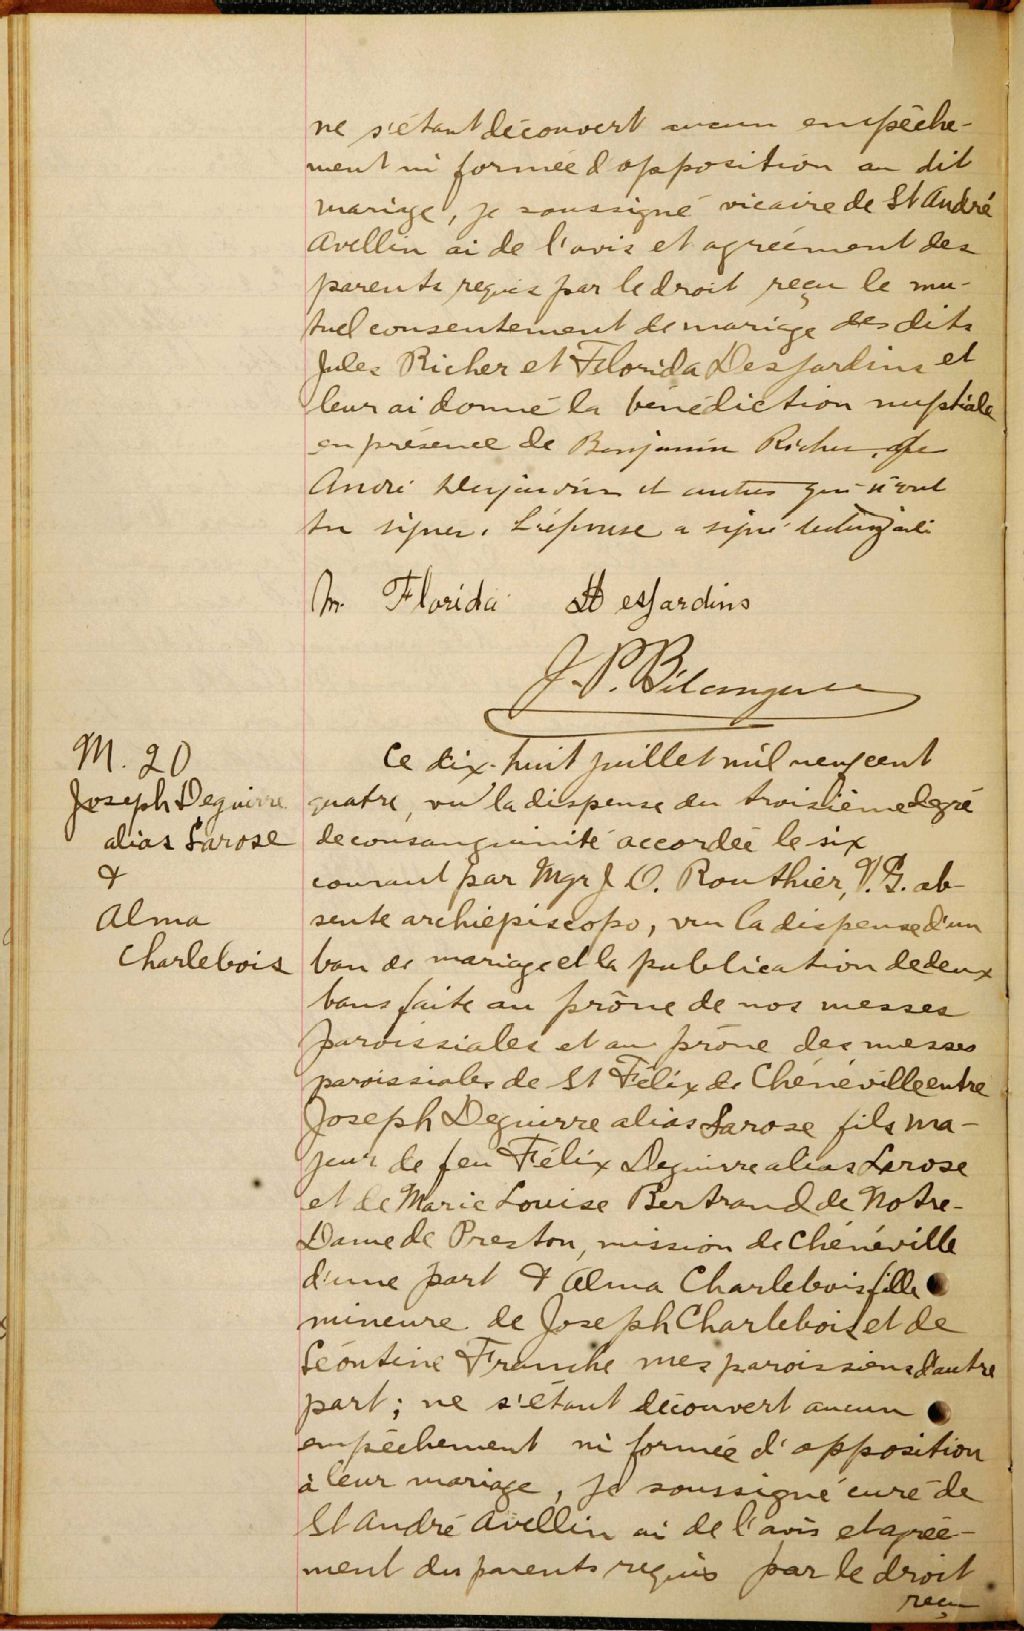 ne s'étant découvert aucun empêche-
ment ni formée d'opposition au dit
mariage, je soussigné vicaire de St André
Avellin ai de l'avis et agréément des
parents requis par le droit reçu le mu-
tuel consentement de mariage des dits
Jules Richer et Florida DesJardins et
leur ai donné la bénédiction nuptiale
en présence de Benjamin Richer,
André Desjardins et autres qui n'ont
su signer. L'épouse a signé
M. Florida DesJardins
J. P. Bélanger
M. 20
Joseph Deguirre
alias Larose
&
Alma
Charlebois
Ce dix-huit juillet mil neuf cent
quatre, vu la dispense du troisième degré
de consanguinité accordée le six
courant par Mgr J. O. Routhier, V. G. ab-
sente archiepiscopo, vu la dispense d'un
ban de mariage et la publication de deux
bans faite au prône de nos messes
paroissiales et au prône des messes
paroissiales de St Félix de Chénéville entre
Joseph Deguirre alias Larose fils ma-
jeur de feu Félix Deguirre alias Larose
et de Marie Louise Bertrand de Notre-
Dame de Preston, mission de Chénéville
d'une part & Alma Charlebois fille
mineure de Joseph Charlebois et de
Léontine Franche mes paroissiens d'autre
part; ne s'étant découvert aucun
empêchement ni formée d'opposition
à leur mariage, je soussigné curé de
St André Avellin ai de l'avis et agrée-
ment des parents requis par le droit
reçu